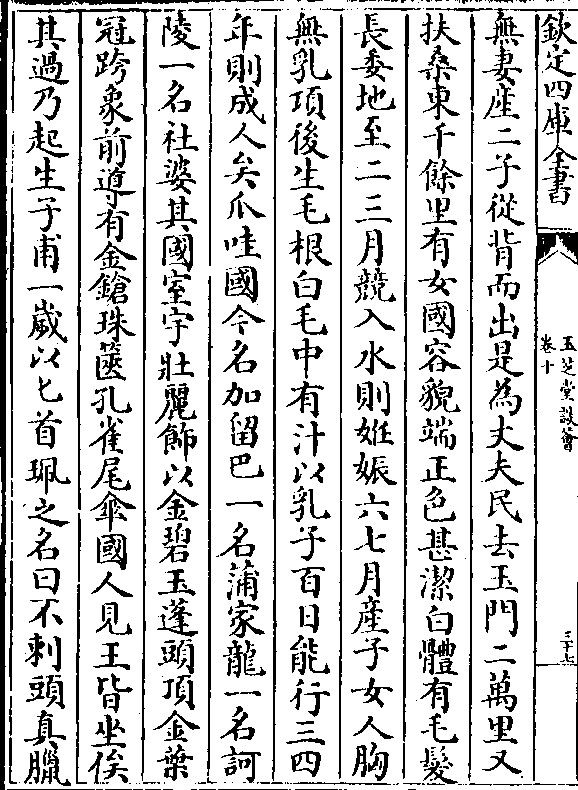 欽定四庫全書
玉芝堂談薈
卷十
三十七
無妻産二子從背而出是為丈夫民去玉門二萬里又
扶桑東千餘里有女國容貌端正色甚潔白體有毛髮
長委地至二三月競入水則姙娠六七月産子女人胸
無乳項後生毛根白毛中有汁以乳子百日能行三四
年則成人矣爪哇國今名加留巴一名蒲家龍一名訶
陵一名社婆其國室宇壯麗飾以金碧玉蓬頭頂金葉
冠跨象前導有金鎗珠篋孔雀尾傘國人見王皆坐俟
其過乃起生子甫一嵗以匕首珮之名曰不剌頭真臘